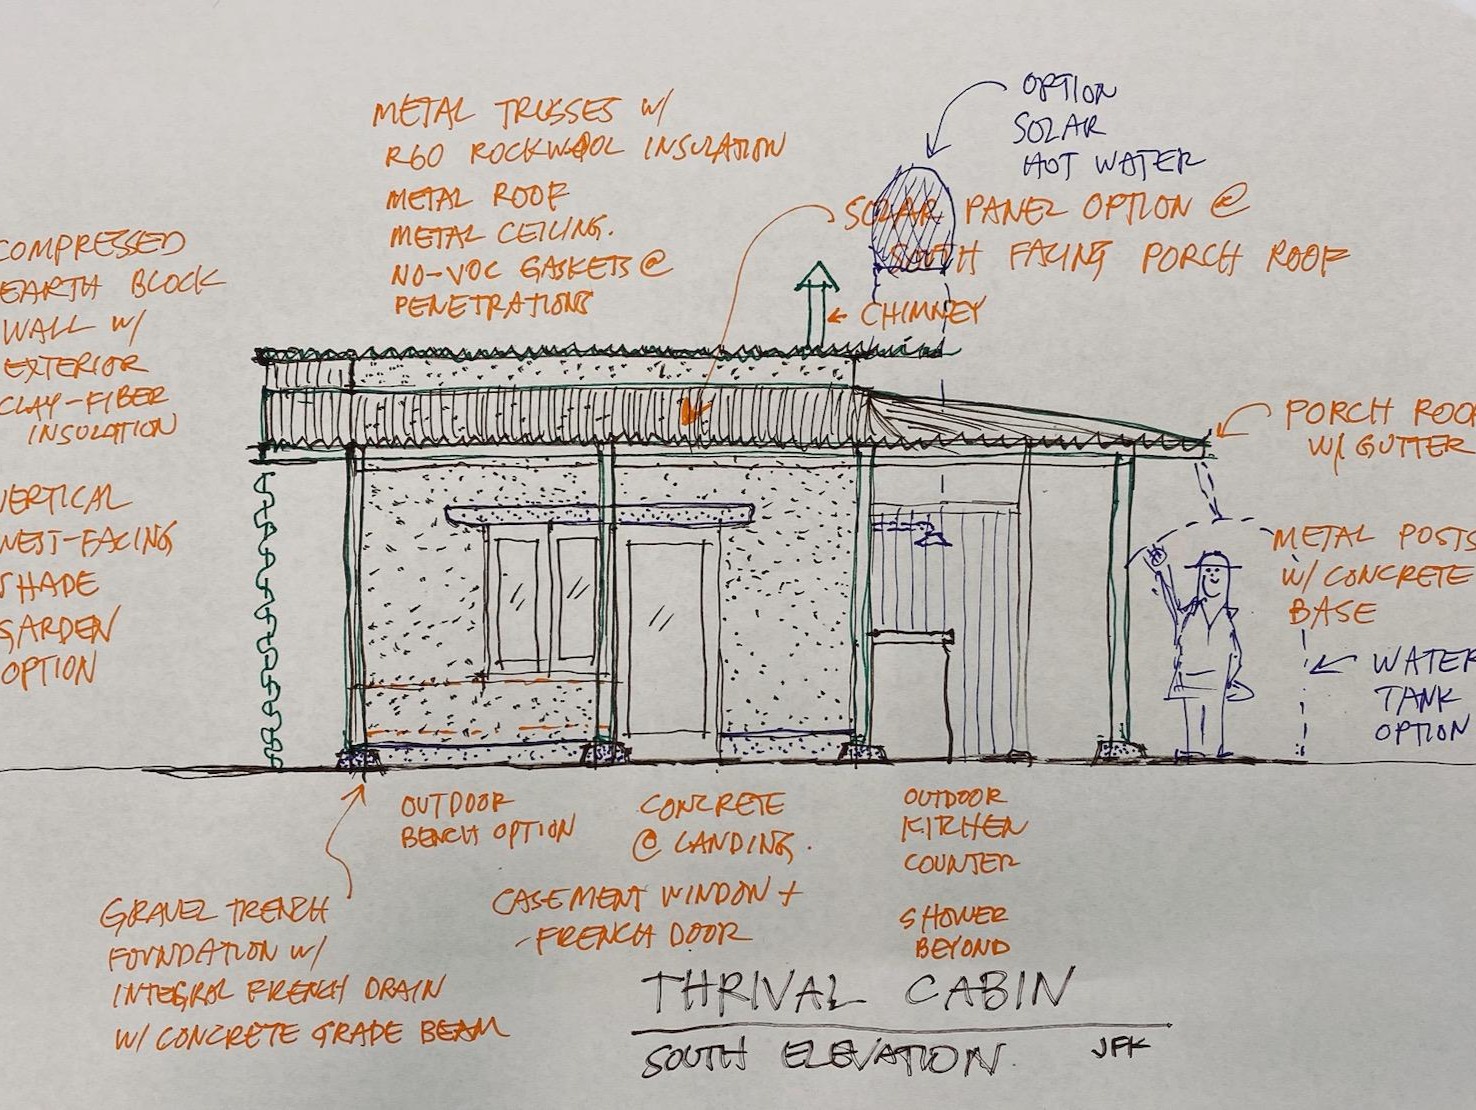 METAL TRUSSES W/
R60 ROCKWOOL INSULATION
METAL ROOF
METAL CEILING.
NO-VOC GASKETS @
PENETRATIONS
OPTION
SOLAR
HOT WATER
SOLAR PANEL OPTION @
SOUTH FACING PORCH ROOF
CHIMNEY
COMPRESSED
EARTH BLOCK
WALL W/
EXTERIOR
CLAY-FIBER
INSULATION
VERTICAL
WEST-FACING
SHADE
GARDEN
OPTION
PORCH ROOF
W/ GUTTER
METAL POSTS
W/ CONCRETE
BASE
WATER
TANK
OPTION
OUTDOOR
BENCH OPTION
CONCRETE
@ LANDING.
CASEMENT WINDOW +
FRENCH DOOR
OUTDOOR
KITCHEN
COUNTER
SHOWER
BEYOND
GRAVEL TRENCH
FOUNDATION W/
INTEGRAL FRENCH DRAIN
W/ CONCRETE GRADE BEAM
THRIVAL CABIN
SOUTH ELEVATION.
JFK